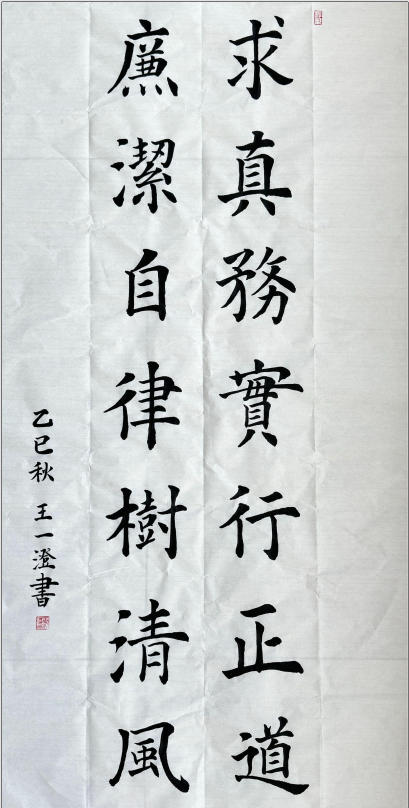 求真務實行正道
廉潔自律樹清風
乙巳秋 王一澄書